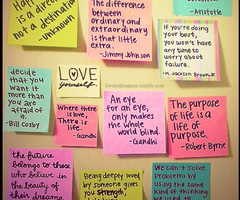 Happiness is a direction
not a destination
-unknown
The difference
between
ordinary and
extraordinary
is that little
extra.
- Jimmy Johnson
- Aristotle
If you're doing
your best,
you won't
have any
time to
worry about
failure.
- H. Jackson Brown Jr.
decide
that you
want it
more than
you are
afraid of
it.
- Bill Cosby
LOVE
yourself.
Where there
is love,
There is
life.
- Gandhi
An eye
for an eye,
only makes
the whole
world blind.
- Gandhi
The purpose
of life is a
life of
purpose.
- Robert Byrne
The future
belongs to those
who believe in
the beauty of
their dreams.
Being deeply loved
by someone
gives you strength,
We can't Solve
Problems by
Using the same
kind of thinking
we used to